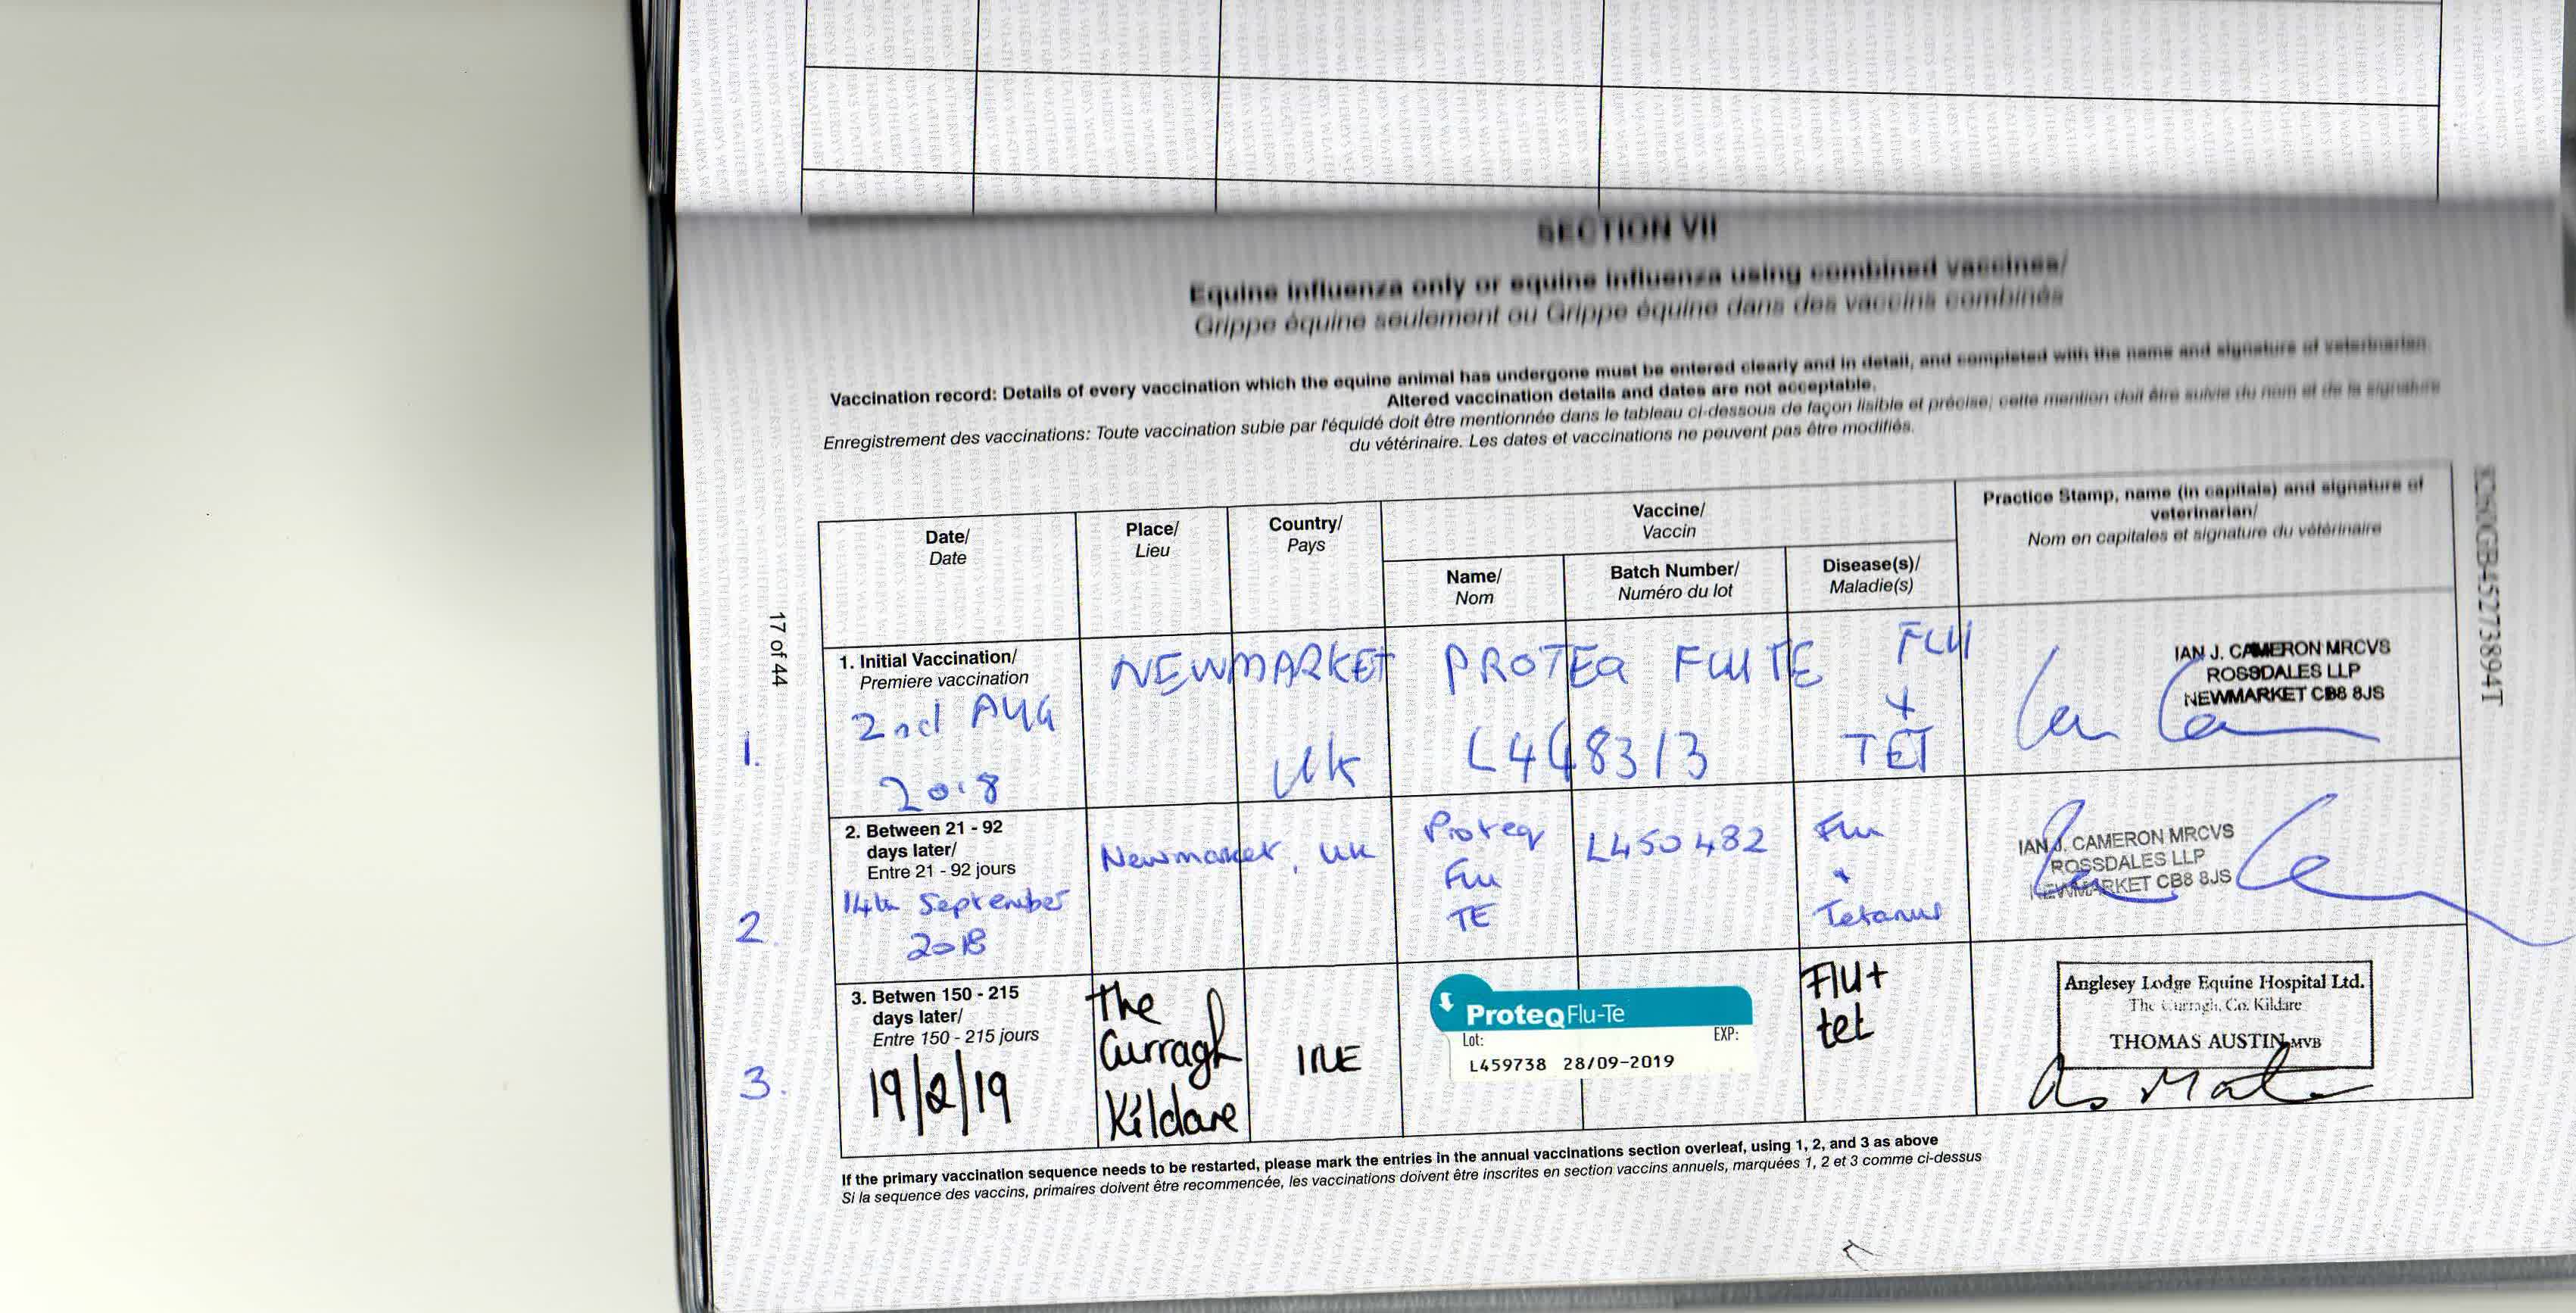 SECTION VII
Equine influenza only or equine influenza using combined vaccines/
Grippe équine seulement ou Grippe équine dans des vaccins combinés
Vaccination record: Details of every vaccination which the equine animal has undergone must be entered clearly and in detail, and completed with the name and signature of veterinarian.
Altered vaccination details and dates are not acceptable.
Enregistrement des vaccinations: Toute vaccination subie par l'équidé doit être mentionnée dans le tableau ci-dessous de façon lisible et précise; cette mention doit être suivie du nom et de la signature
du vétérinaire. Les dates et vaccinations ne peuvent pas être modifiés.
Date/
Date
Place/
Lieu
Country/
Pays
Vaccine/
Vaccin
Name/
Nom
Batch Number/
Numéro du lot
Disease(s)/
Maladie(s)
Practice Stamp, name (in capitals) and signature of
veterinarian/
Nom en capitales et signature du vétérinaire
17 of 44
1.
1. Initial Vaccination/
Premiere vaccination
2nd AUG
2018
NEWMARKET
UK
PROTEQ FLU TE
L448313
FLU
+
TET
IAN J. CAMERON MRCVS
ROSSDALES LLP
NEWMARKET CB8 8JS
2.
2. Between 21 - 92
days later/
Entre 21 - 92 jours
14th September
2018
Newmarket, UK
Proteq
Flu
TE
L450482
Flu
+
Tetanus
IAN J. CAMERON MRCVS
ROSSDALES LLP
NEWMARKET CB8 8JS
3.
3. Betwen 150 - 215
days later/
Entre 150 - 215 jours
19/2/19
The
Curragh
Kildare
IRE
ProteqFlu-Te
Lot:
EXP:
L459738 28/09-2019
Flu+
tet
Anglesey Lodge Equine Hospital Ltd.
The Curragh, Co. Kildare
THOMAS AUSTIN MVB
If the primary vaccination sequence needs to be restarted, please mark the entries in the annual vaccinations section overleaf, using 1, 2, and 3 as above
Si la sequence des vaccins, primaires doivent être recommencée, les vaccinations doivent être inscrites en section vaccins annuels, marquées 1, 2 et 3 comme ci-dessus